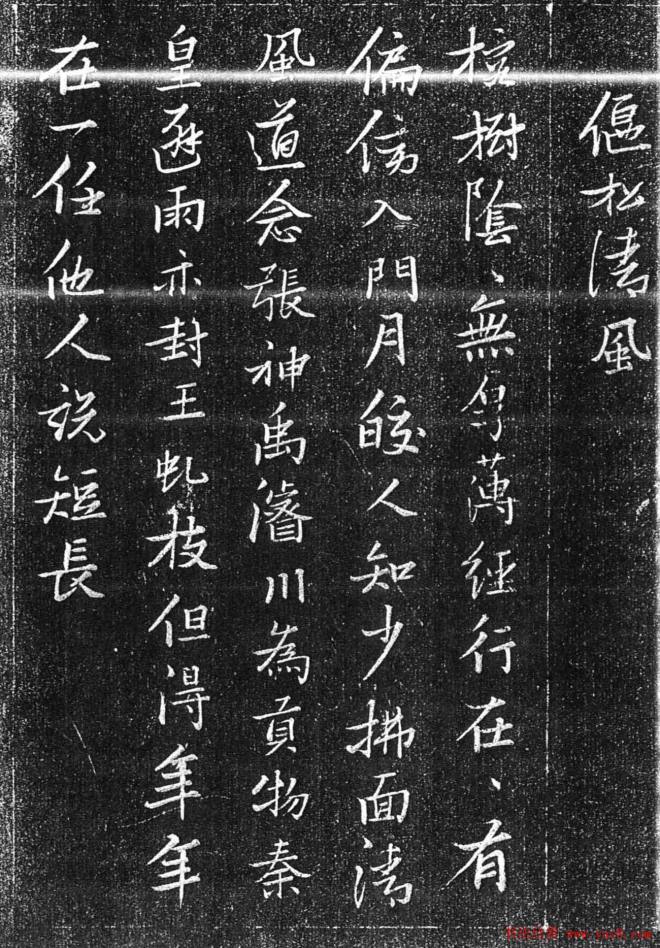 偃松清風
樹陰、無㝵薄經行在、有
偏傍入門月皎人知少拂面清
風道念張神禹濬川為貢物秦
皇避雨亦封王虬枝但得年年
在一任他人說短長